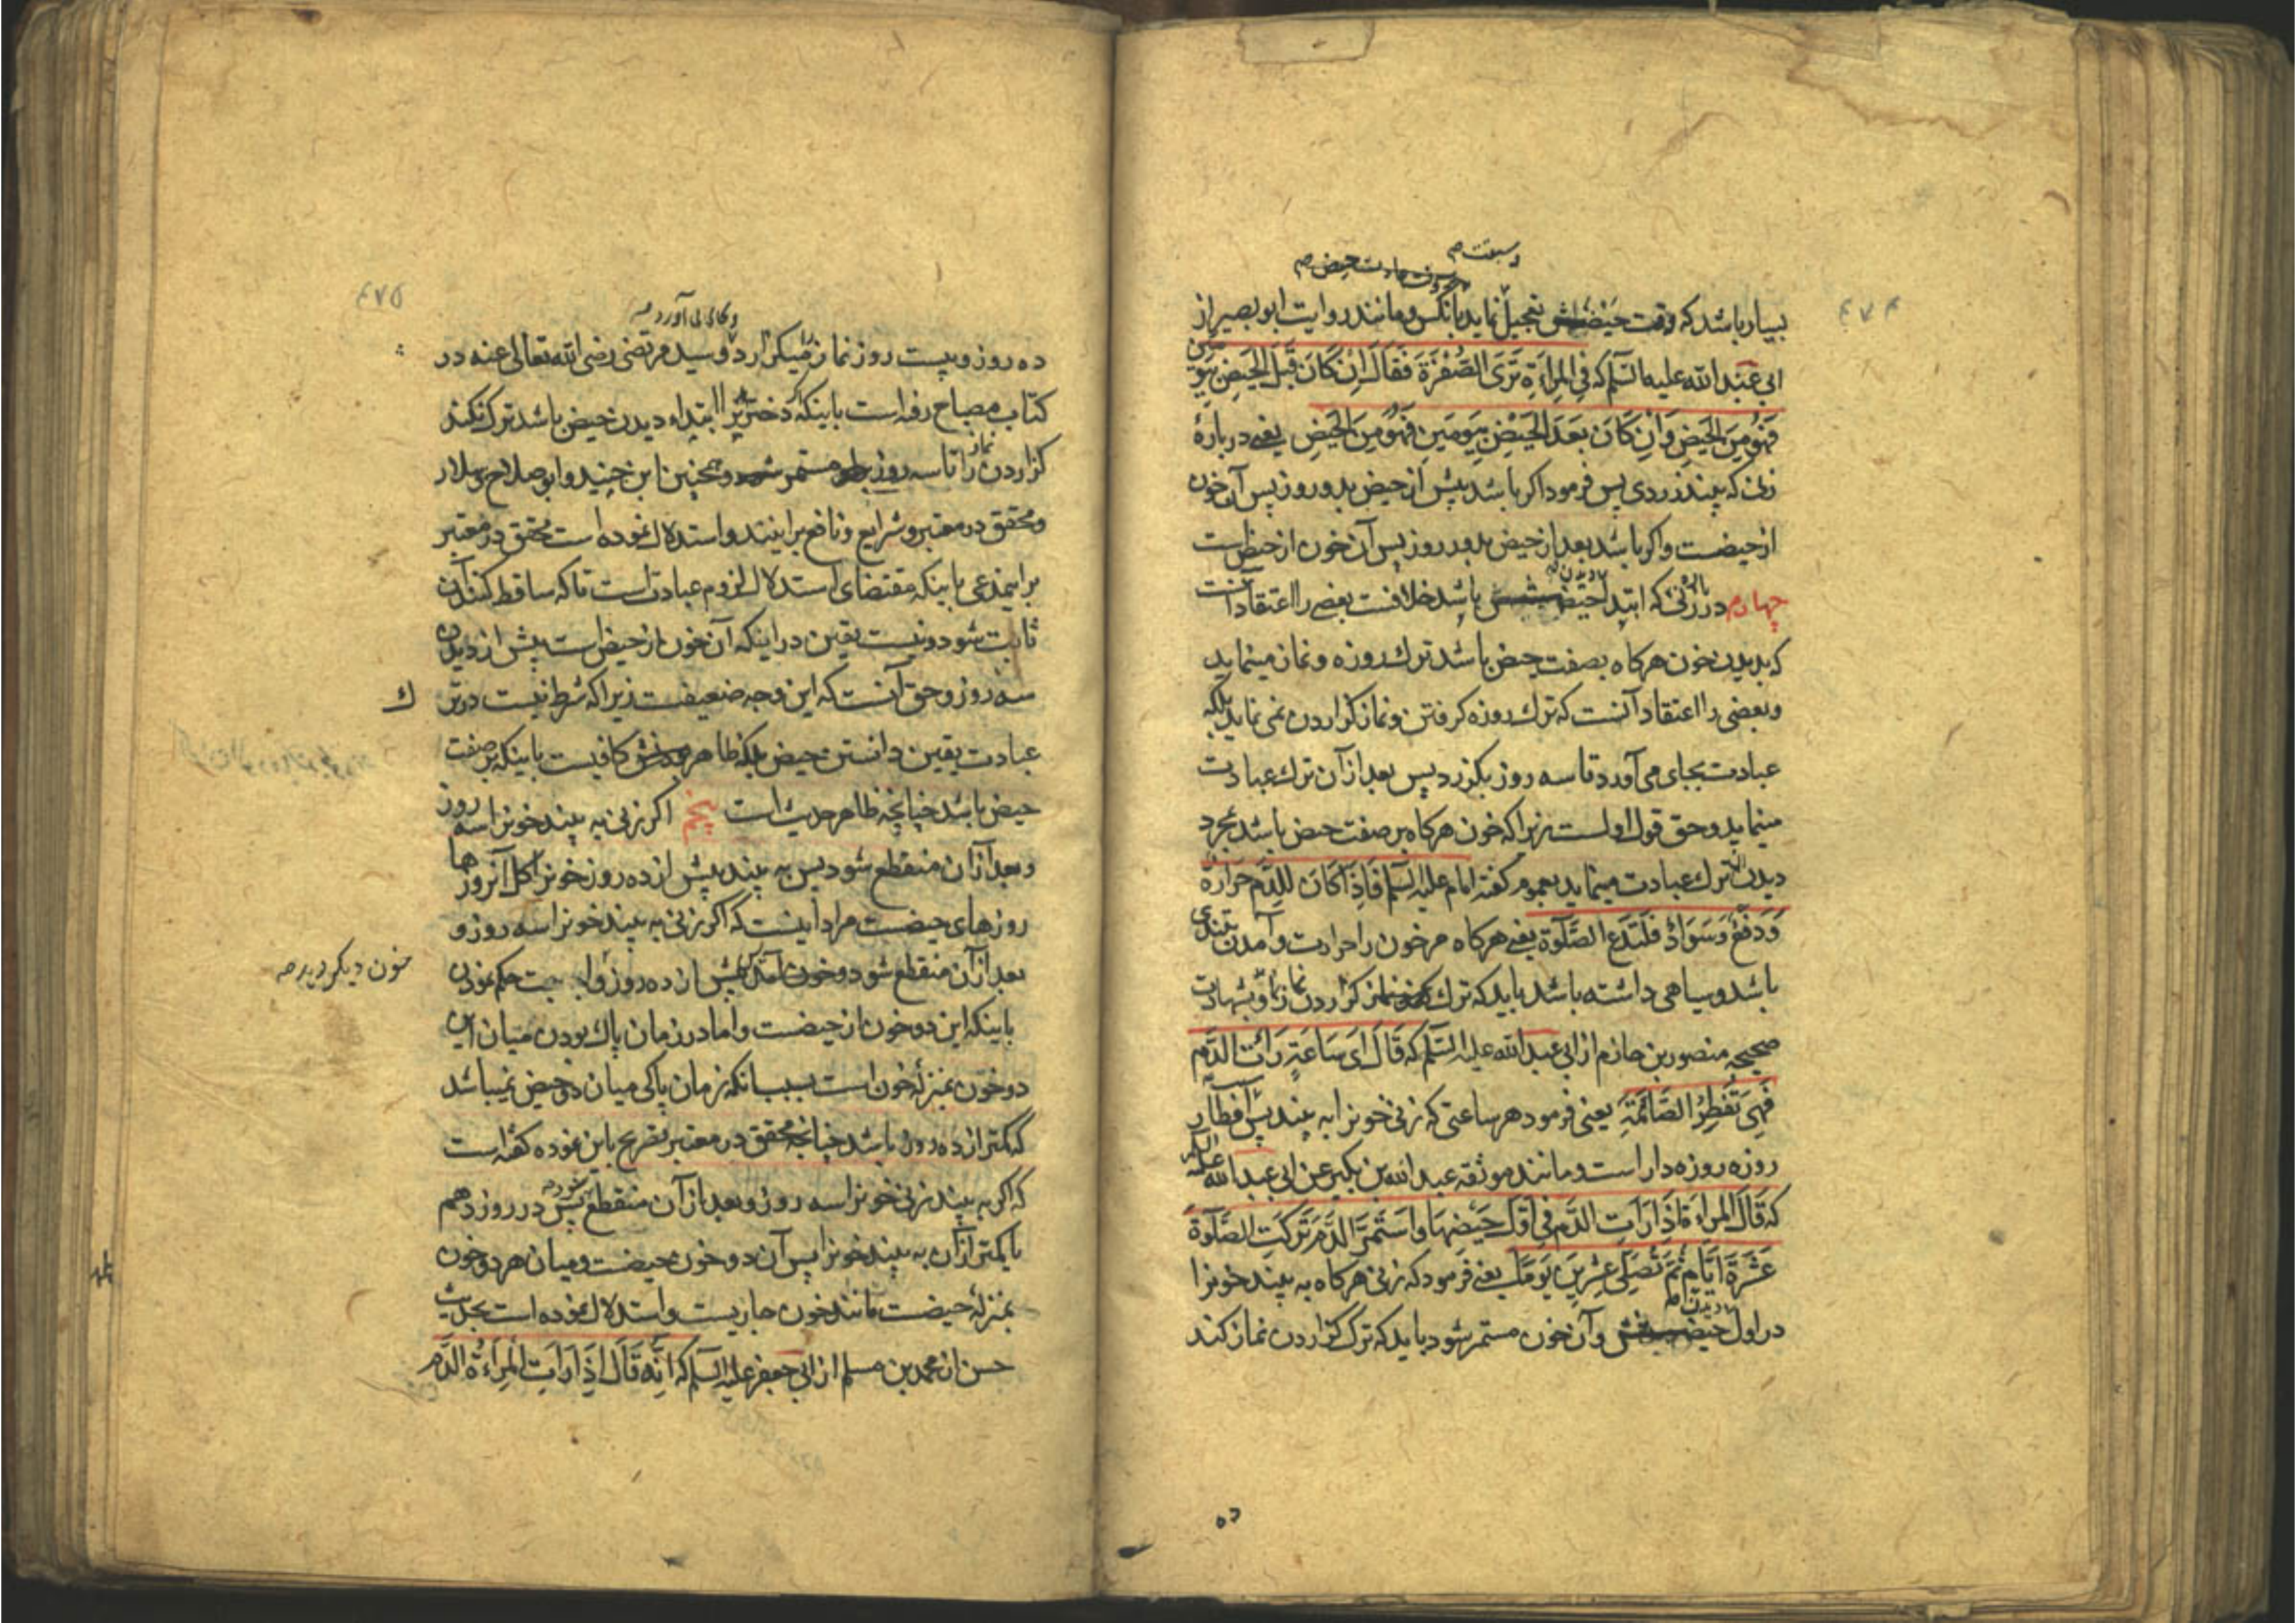 ۴۷۴
بسیار باشد که وقت تعجیل نماید بآنکس و مانند روایت ابو بصیر از
ابی عبد الله علیه السلم که فِی المِراَةِ تَرَی الصُّفرَةَ فَقالَ اِن کانَ قَبلَ الحَیضِ بِیَومَین
فَهُوَ مِنَ الحَیضِ وَاِن کانَ بَعدَ الحَیضِ بِیَومَینِ فَهُوَ مِنَ الحَیضِ یعنی در بارهٔ
زنی که بیند زردی پس فرمود اکر باشد پیش از حیض بدو روز پس آن خون
از حیضست و اکر باشد بعد از حیض بدو روز پس آن خون از حیض است
چهارم در زنی که ابتدا حیض دیدن باشد خلافست بعضی را اعتقاد آنست
که بدیدن خون هرکاه بصفت حیض باشد ترک روزه و نماز مینماید
و بعضی را اعتقاد آنست که ترک روزه کرفتن و نماز کزاردن نمی نماید بلکه
عبادت بجای می آورد تا سه روز بکزرد پس بعد از آن ترک عبادت
مینماید و حق قول اولست زیرا که خون هرکاه بر صفت حیض باشد بمجرد
دیدن ترک عبادت مینماید بعموم کفته امام علیه السلم فَاِذا کانَ لِلدَّمِ حَرارَةٌ
وَدَفعٌ وَسَوادٌ فَلتَدَعِ الصَّلوةَ یعنی هرکاه مر خون را حرارت و آمدن بتندی
باشد و سیاهی داشته باشد باید که ترک کزاردن نماز نماید و بشهادت
صحیحه منصور بن حازم از ابی عبد الله علیه السلم که قالَ ای ساعَةٍ رَاَتِ الدَّم
فَهِیَ تُفطِرُ الصّائِمَة یعنی فرمود هر ساعتی که زنی خونرا به بیند پس افطار
روزه روزه دار است و مانند موثقه عبد الله بن بکیر عن ابی عبد الله علیه السلم
که قالَ المراة اِذا رَاَتِ الدَّم فی اَوَّلِ حَیضِها وَاستَمَرَّ الدَّم تَرَکَتِ الصَّلوةَ
عَشَرَةَ ایّامٍ ثُمَّ تُصَلّی عِشرینَ یَوماً یعنی فرمود که زنی هرکاه به بیند خونرا
در اول حیض دیدن و آن خون مستمر شود باید که ترک کزاردن نماز کند
ده
۴۷۵
ده روز و بیست روز نماز میکزارد و سید مرتضی رضی الله تعالی عنه در
کتاب مصباح رفته است باینکه دختریرا ابتداء دیدن حیض باشد ترک نکند
کزاردن نماز را تا سه روز مستمر و همچنین ابن جنید و ابو صلاح و سلار
و محقق در معتبر و شرایع و نافع براینند و استدلال نموده است محقق در معتبر
براینمدعی باینکه مقتضای استدلال لزوم عبادت است تا که ساقط کننده آن
ثابت شود و نیست یقین در اینکه آن خون از حیض است پیش از دیدن
سه روز و حق آنست که این وجه ضعیفست زیرا که شرط نیست در تر
ک
عبادت یقین دانستن حیض بلکه ظاهر کافیست باینکه بر صفت
حیض باشد چنانچه ظاهر حدیث است پنجم اکر زنی به بیند خونرا سه روز
و بعد از آن منقطع شود پس به بیند پیش از ده روز خونرا کل آنروزها
روزهای حیضست مراد اینست که اکر زنی به بیند خونرا سه روز و
بعد از آن منقطع شود و خون پیش از ده روز حکم نمودن
خون دیکر دیدن
باینکه این دو خون از حیضست و اما در زمان پاک بودن میان این
دو خون بمنزله خون است بسبب آنکه زمان پاکی میان دو حیض نمیباشد
که کمتر از ده روز باشد چنانچه محقق در معتبر تصریح باین نموده کفته است
که اکر به بیند زنی خونرا سه روز و بعد از آن منقطع شود پس در روز دهم
یا کمتر از آن به بیند خونرا پس آن دو خون حیضست و میان هر دو خون
بمنزله حیضست مانند خون جاریست و استدلال نموده است بحدیث
حسن از محمد بن مسلم از ابی جعفر علیه السلم که اِنَّه قالَ اِذا رَاَتِ المِراءَةُ الدَّم